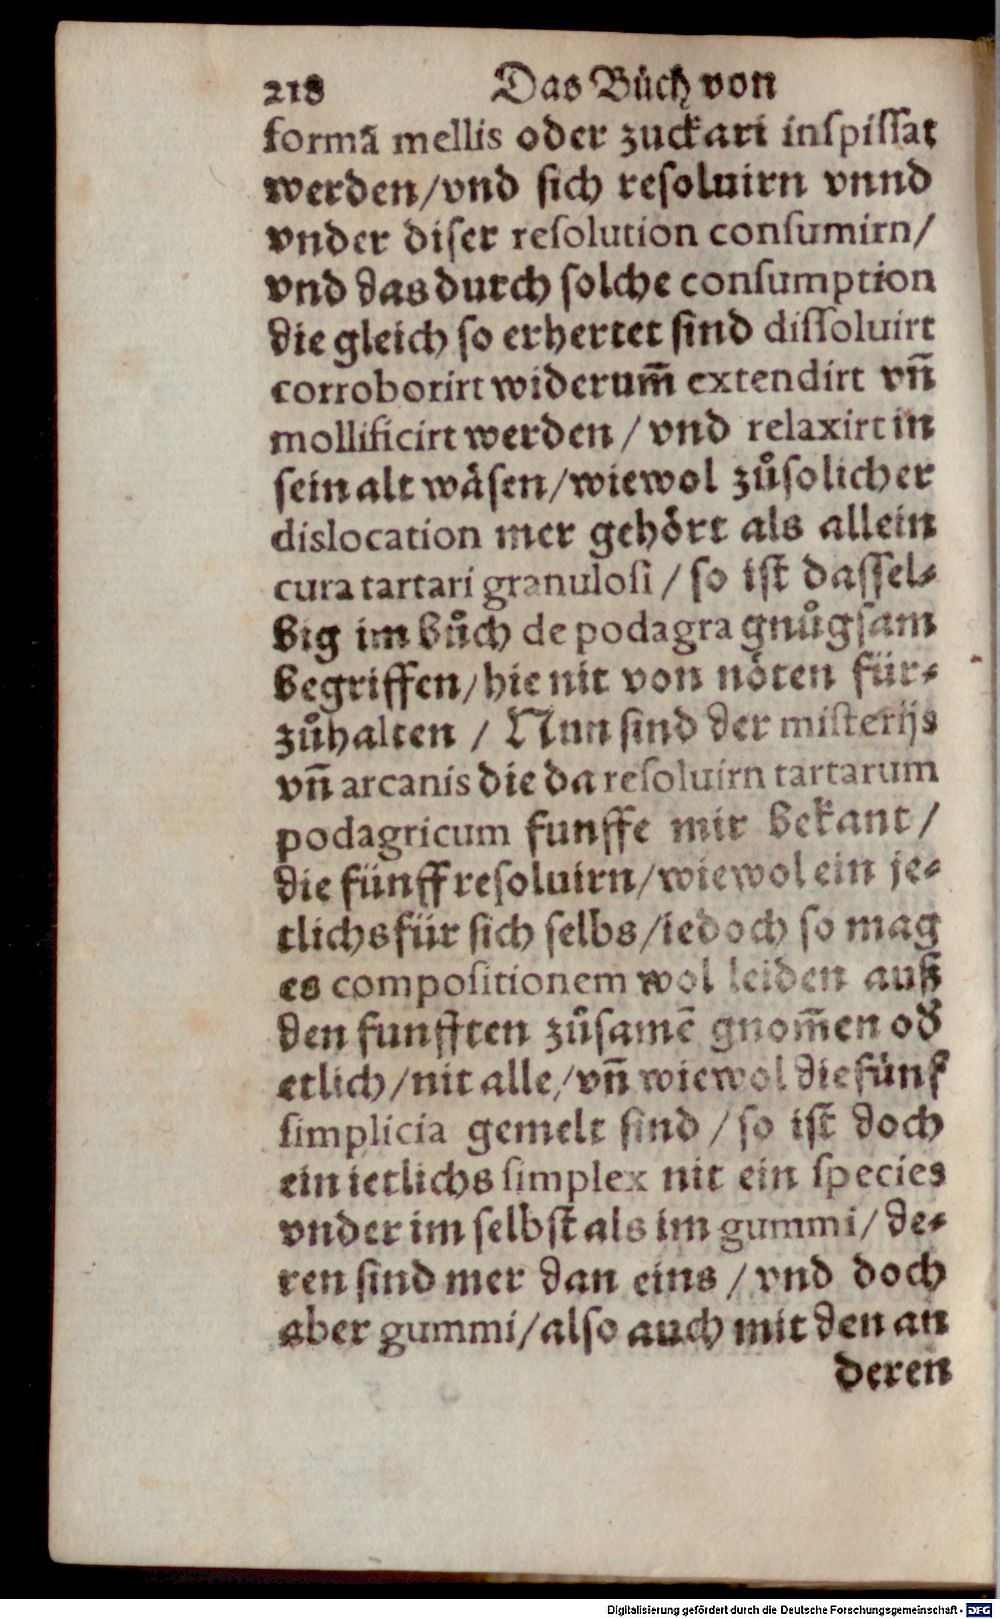 218 Das Bůch von
formã mellis oder zuckari inſpiſſat
werden/vnd ſich reſoluirn vnnd
vnder diſer reſolution conſumirn/
vnd das durch ſolche conſumption
die gleich ſo erhertet ſind diſſoluirt
corroborirt widerum̃ extendirt vñ
mollificirt werden / vnd relaxirt in
ſein alt wäſen/wiewol zůſolicher
dislocation mer gehört als allein
cura tartari granuloſi / ſo iſt daſſel-
big im bůch de podagra gnůgſam
begriffen/hie nit von nöten für-
zůhalten / Nun ſind der miſterijs
vñ arcanis die da reſoluirn tartarum
podagricum funffe mir bekant /
die fünff reſoluirn/wiewol ein je-
tlichs für ſich ſelbs/iedoch ſo mag
es compoſitionem wol leiden auß
den funfften zůſamẽ gnom̃en od̃
etlich/nit alle/vñ wiewol die fünf
ſimplicia gemelt ſind / ſo iſt doch
ein ietlichs ſimplex nit ein ſpecies
vnder im ſelbſt als im gummi/ de-
ren ſind mer dan eins / vnd doch
aber gummi/alſo auch mit den an
deren
Digitalisierung gefördert durch die Deutsche Forschungsgemeinschaft - DFG